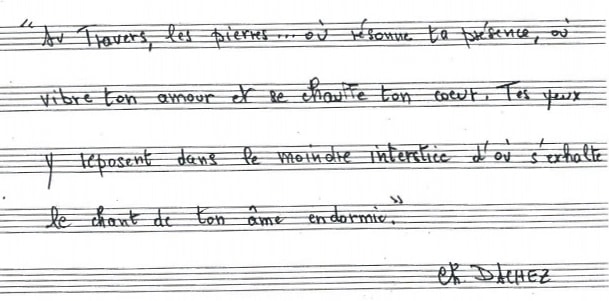 "Au Travers, les pierres... où résonne ta présence, où
vibre ton amour et se chauffe ton coeur. Tes yeux
y reposent dans le moindre interstice d'où s'exhalte
le chant de ton âme endormie."
Ch. DACHEZ